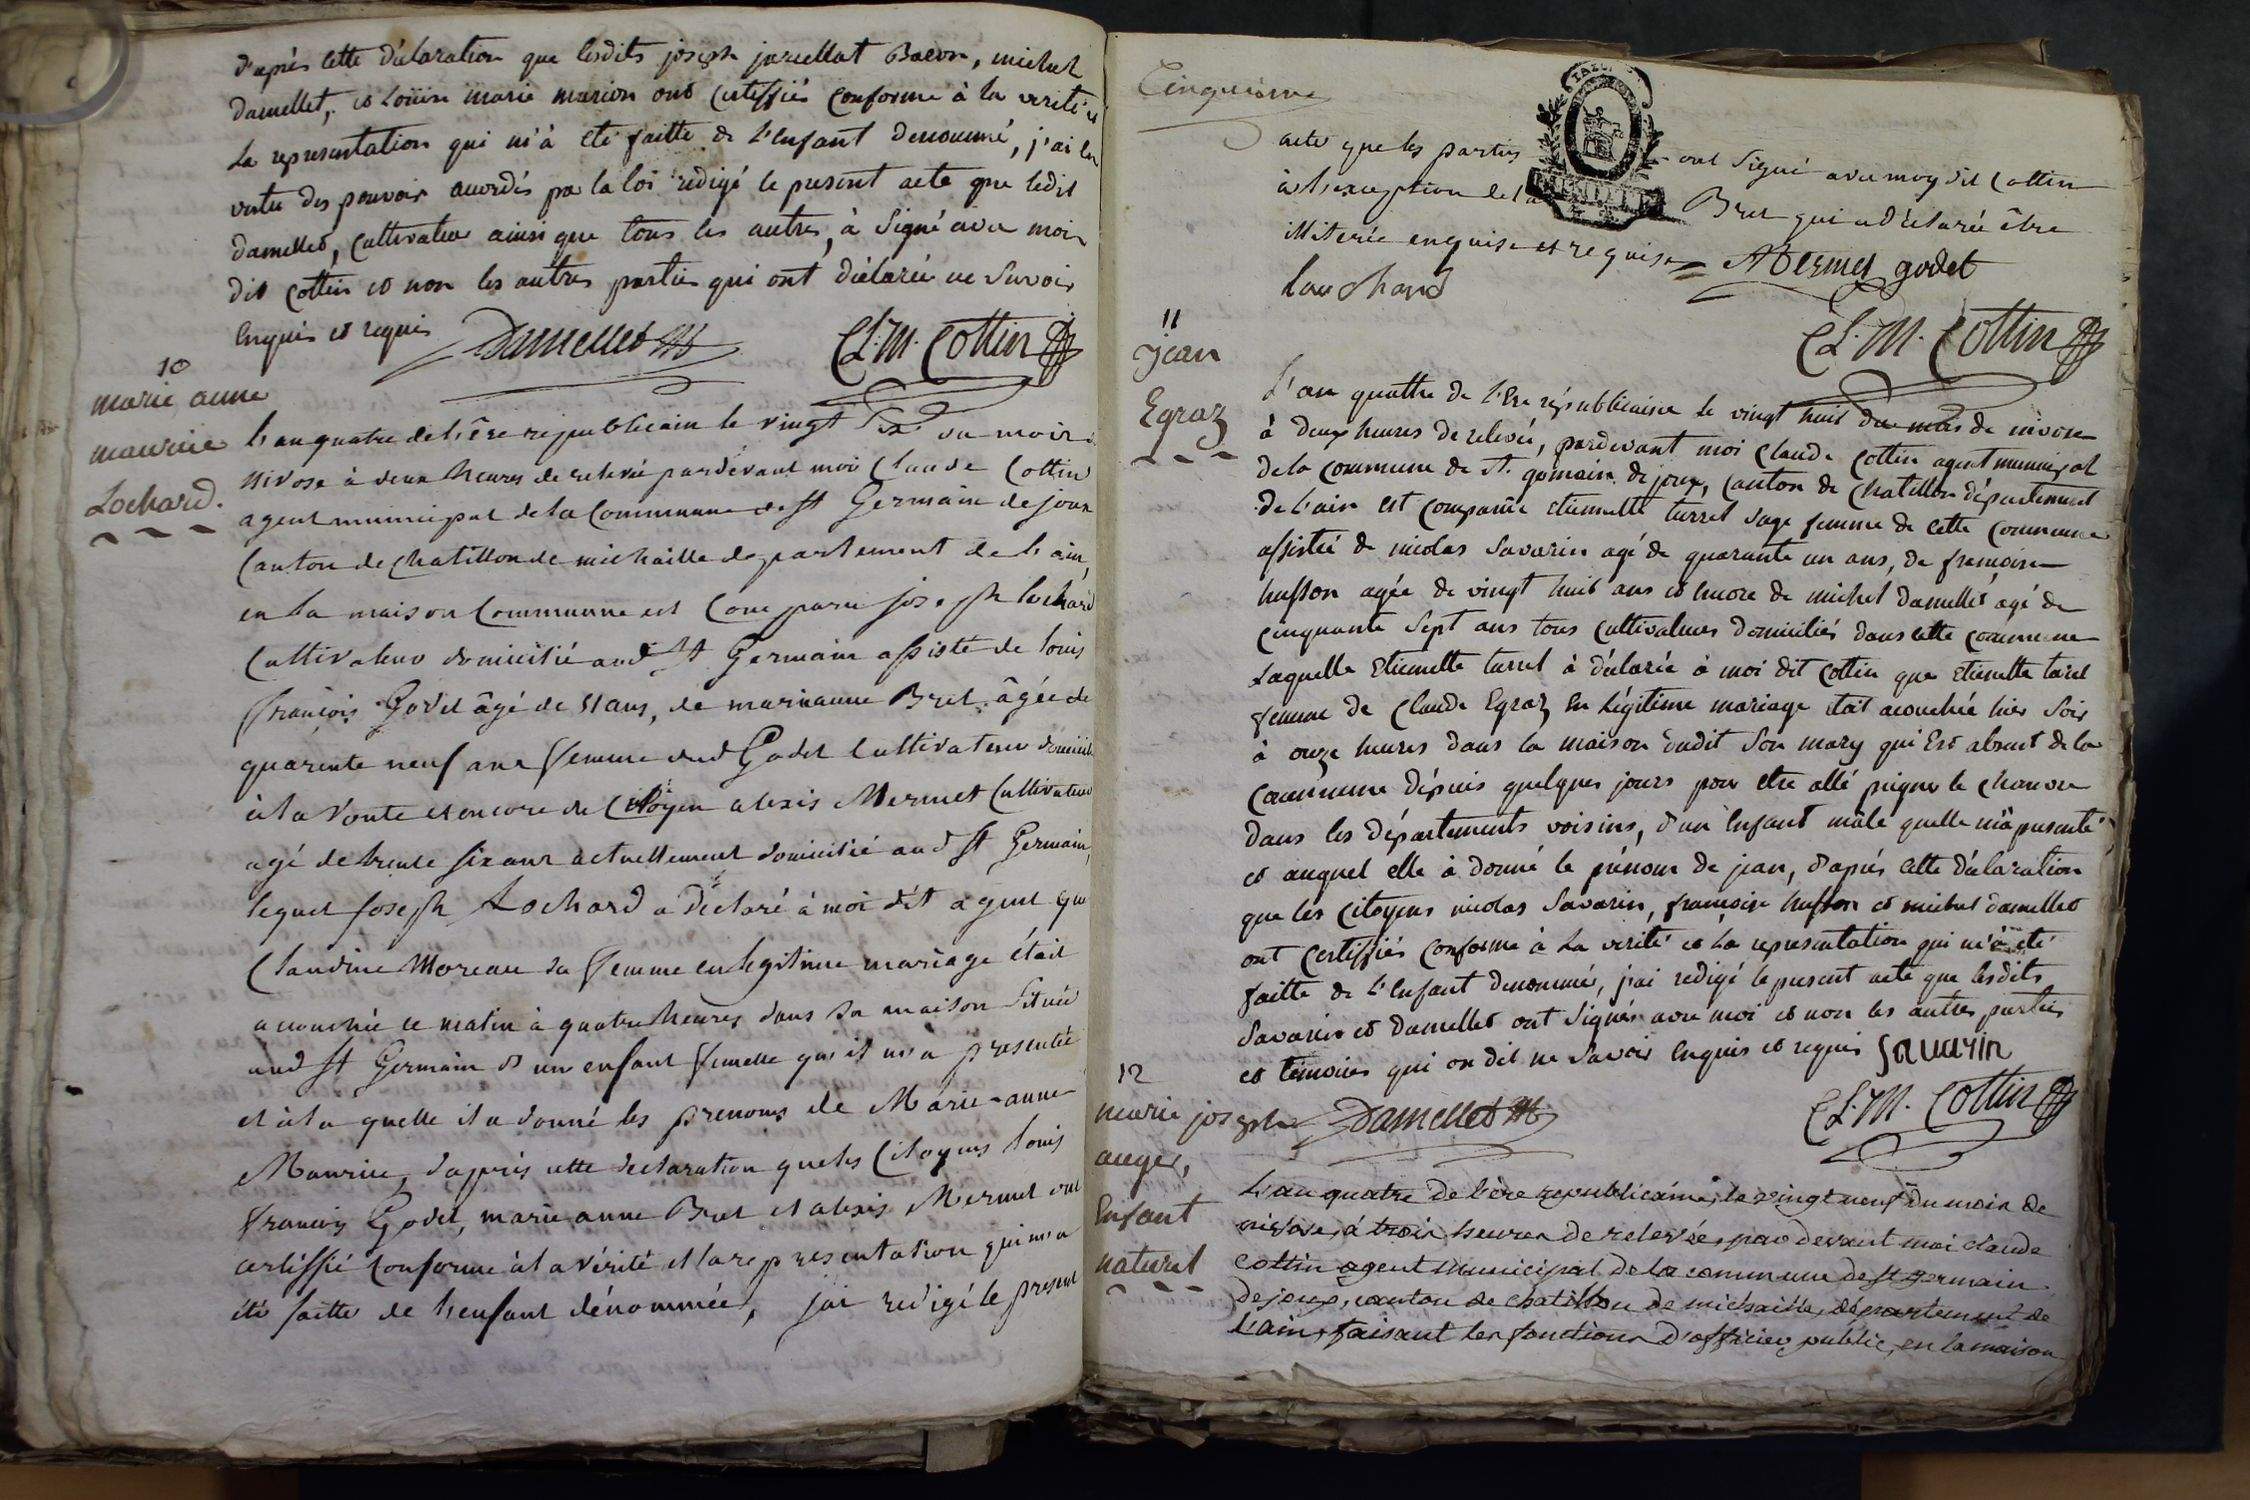 d'après cette déclaration que lesdits joseph juvellat Baron, michel
damellet, et Loüise marie marion ont certiffiés conforme à la verité et
La representation qui m'à eté faitte de L'enfant denommé, j'ai en
vertu des pouvoir accordés par la loi redigé le present acte que ledit
damellet, cultivateur ainsi que tous les autres, à signé avec moi
dit cottin et non les autres parties qui ont déclarée ne savoir
enquis et requis Damellet CL. M. Cottin
10
marie anne
mauricie
Lochard.
L'an quatre de L'ère republicain le vingt six du mois de
nivose à deux heures de relevée pardevant moi Claude Cottin
agent municipal de la Commune de St Germain de joux
Canton de Chatillon de michaille departement de L'ain,
en La maison Commune est Comparu joseph Lochard
Cultivateur domicilié aud St Germain assisté de Louis
françois Godet âgé de 51 ans, de mariaune Bret âgée de
quarente neuf ans femme dud Godet Cultivateur domicilié
à la Voute et encore du Citoyen alexis Mermet Cultivateur
agé de trente six ans actuellement domicilié aud St Germain,
lequel joseph Lochard a déclaré à moi dit agent que
Claudine Moreau sa femme en legitime mariage était
acouchée ce matin à quatre heures dans sa maison située
aud St Germain d'un enfant femelle qu'il m'a presentée
et à la quelle il a donné les prenoms de Marie-anne
Mauricie, d'apprès cette declaration que les Citoyens Louis
françois Godet, marie anne Bret et alexis Mermet ont
certiffié conforme à la vérité et la representation qui m'a
été faitte de L'enfant dénommée, j'ai redigé le present
Cinquieme
acte que les parties ont signé avec moy dit Cottin
à l'exception de la Bret qui a déclarée être
illiterée enquise et requise AMermet godet
Lauchard
CL. M. Cottin
11
jean
Egraz
L'an quattre de l'Ere républicaine le vingt huit du mois de nivose
à deux heures de relevée, pardevant moi Claude Cottin agent municipal
de la commune de St. germain de joux, canton de Chatillon département
de L'ain est comparûe etiennette turrel sage femme de cette commune
assistée de nicolas Savarin agé de quarante un ans, de françoise
husson agée de vingt huit ans et encore de michel damellet agé de
cinquante sept ans tous cultivateurs domiciliés dans cette commune
Laquelle etiennette turrel à déclarée à moi dit cottin que etiennette tarel
femme de Claude Egraz en légitime mariage était acouchée hier soir
à onze heures dans la maison dudit son mary qui est absent de la
commune dépuis quelques jours pour etre allé peigner le chanvre
dans les départements voisins, d'un enfant mâle quelle m'à presenté
et auquel elle à donné le prénom de jean, d'après cette déclaration
que les citoyens nicolas Savarin, françoise husson et michel damellet
ont certiffiés conforme à La verité et La representation qui m'à eté
faitte de L'enfant denommé, j'ai redigé le present acte que lesdits
Savarin et damellet ont signés avec moi et non les autres parties
et témoins qui on dit ne savoir enquis et requis Savarin
Damellet CL. M. Cottin
12
marie joseph
auger,
Enfant
naturel
L'an quatre de l'ère republicaine, le vingt neuf du mois de
nivose, à trois heures de relevée, par devant moi claude
cottin agent municipal de la commune de St germain
de joux, canton de chatillon de michaille, département de
L'ain, faisant les fonctions d'officier public, en la maison